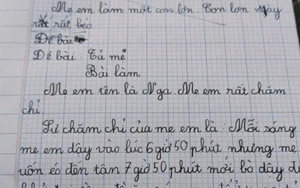 Mẹ em làm một con lợn. Con lợn này
rất rất béo
Đề bài
Đề bài Tả mẹ
Bài làm
Mẹ em tên là Nga. Mẹ em rất chăm
chỉ
Sự chăm chỉ của mẹ em là: Mỗi sáng
mẹ em dậy vào lúc 6 giờ 50 phút nhưng mẹ
uốn éo đến tận 7 giờ 50 phút mới bò dậy đ